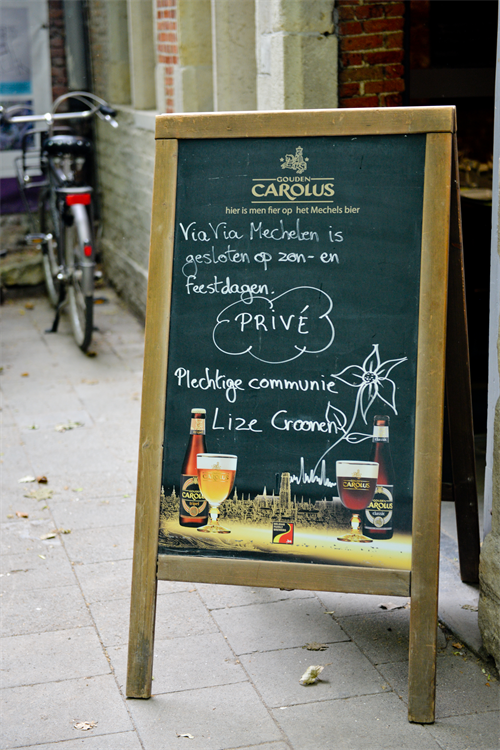 GOUDEN
CAROLUS
hier is men fier op het Mechels bier
Via Via Mechelen is
gesloten op zon- en
feestdagen.
PRIVÉ
Plechtige communie
Lize Croonen
CAROLUS
CAROLUS
CAROLUS
CAROLUS